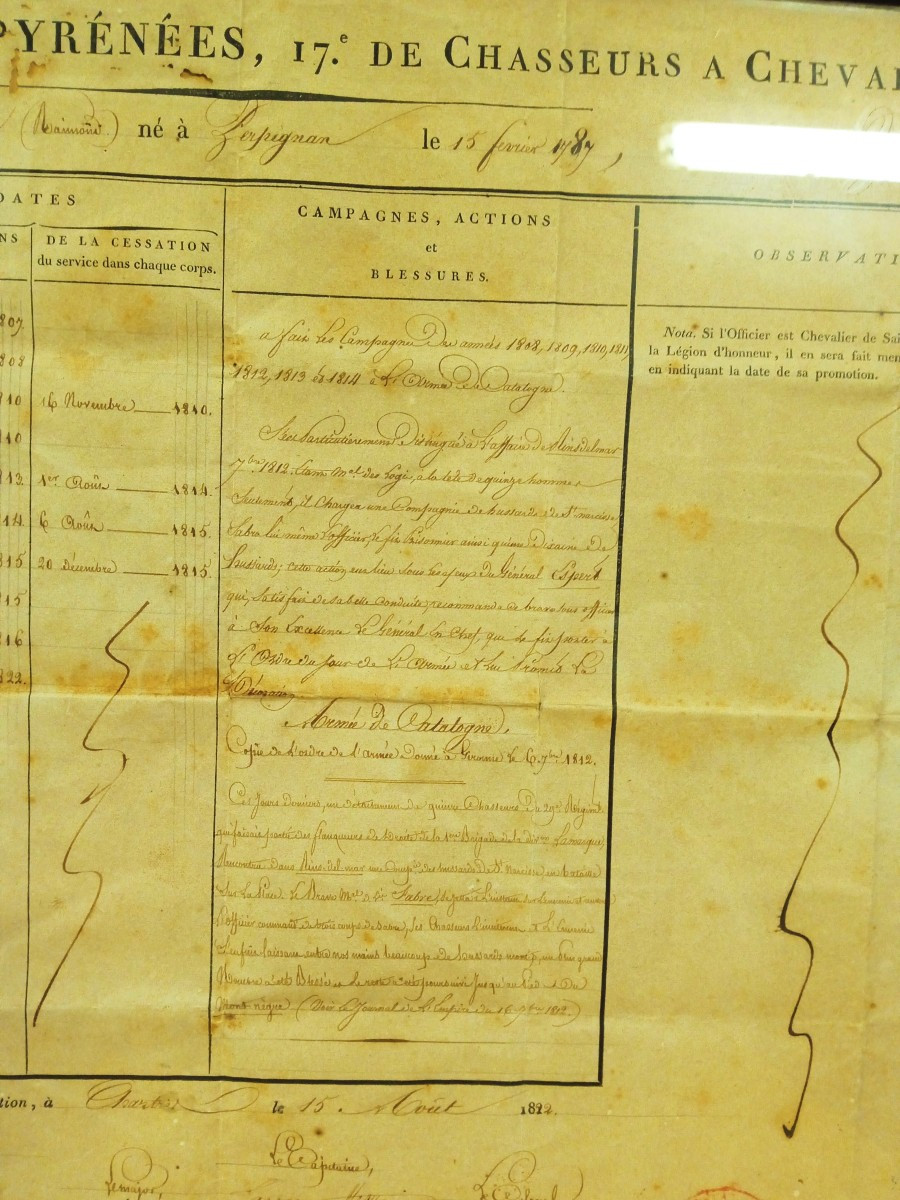 PYRÉNÉES, 17.e DE CHASSEURS A CHEVAL
(Raimond) né à Perpignan le 15 février 1787,
DATES
DE LA CESSATION
du service dans chaque corps.
CAMPAGNES, ACTIONS
et
BLESSURES.
OBSERVATI
Nota. Si l'Officier est Chevalier de Sai
la Légion d'honneur, il en sera fait men
en indiquant la date de sa promotion.
807
808
810 16 Novembre 1810.
810
813 1er Août 1814.
814 6 Août 1815.
815 20 Décembre 1815.
815
816
822.
a fait les Campagnes des années 1808, 1809, 1810, 1811,
1812, 1813 et 1814 à l'Armée de Catalogne.
S'est Particulièrement Distingué à l'affaire de Rins del mar
7bre 1812. étant Mal des Logis, à la tête de quinze hommes
Seulement, il Chargea une Compagnie de hussards de St narcisse,
Sabra lui même l'officier, le fit Prisonnier ainsi qu'une dixaine de
hussards; cette action eut lieu sous les yeux du Général Espert
qui, Satisfait de sa belle Conduite, recommanda ce brave sous officier
à Son Excellence le Général en Chef, qui le fit porter à
l'Ordre du Jour de l'Armée et lui Promit la
Armée de Catalogne.
Copie de l'ordre de l'armée donné à Gironne le 6 7bre 1812.
Ces Jours Derniers, un détachement de quinze Chasseurs du 29me Régiment
qui faisait partie des flanqueurs de Droite de la 1ere Brigade de la divon Lamarque,
Rencontra dans Rins del mar une Compie des hussards de St Narcisse, en bataille
Sur la Place. Le Brave Mal d. L. Fabre, se jetta à l'instant sur l'ennemi et
l'officier commandt de trois coups de Sabre, les Chasseurs l'imitèrent et l'Ennemi
s'enfuit laissant entre nos mains beaucoup de hussards un plus grand
Nombre a été Blessé et le reste a été poursuivi Jusqu'au Pied du
Mont nègre (Voir le Journal de l'Empire du 16 7bre 1812.)
tion, à le 15 Août 1822.
Le Capitaine,
Le major,
Le Colonel